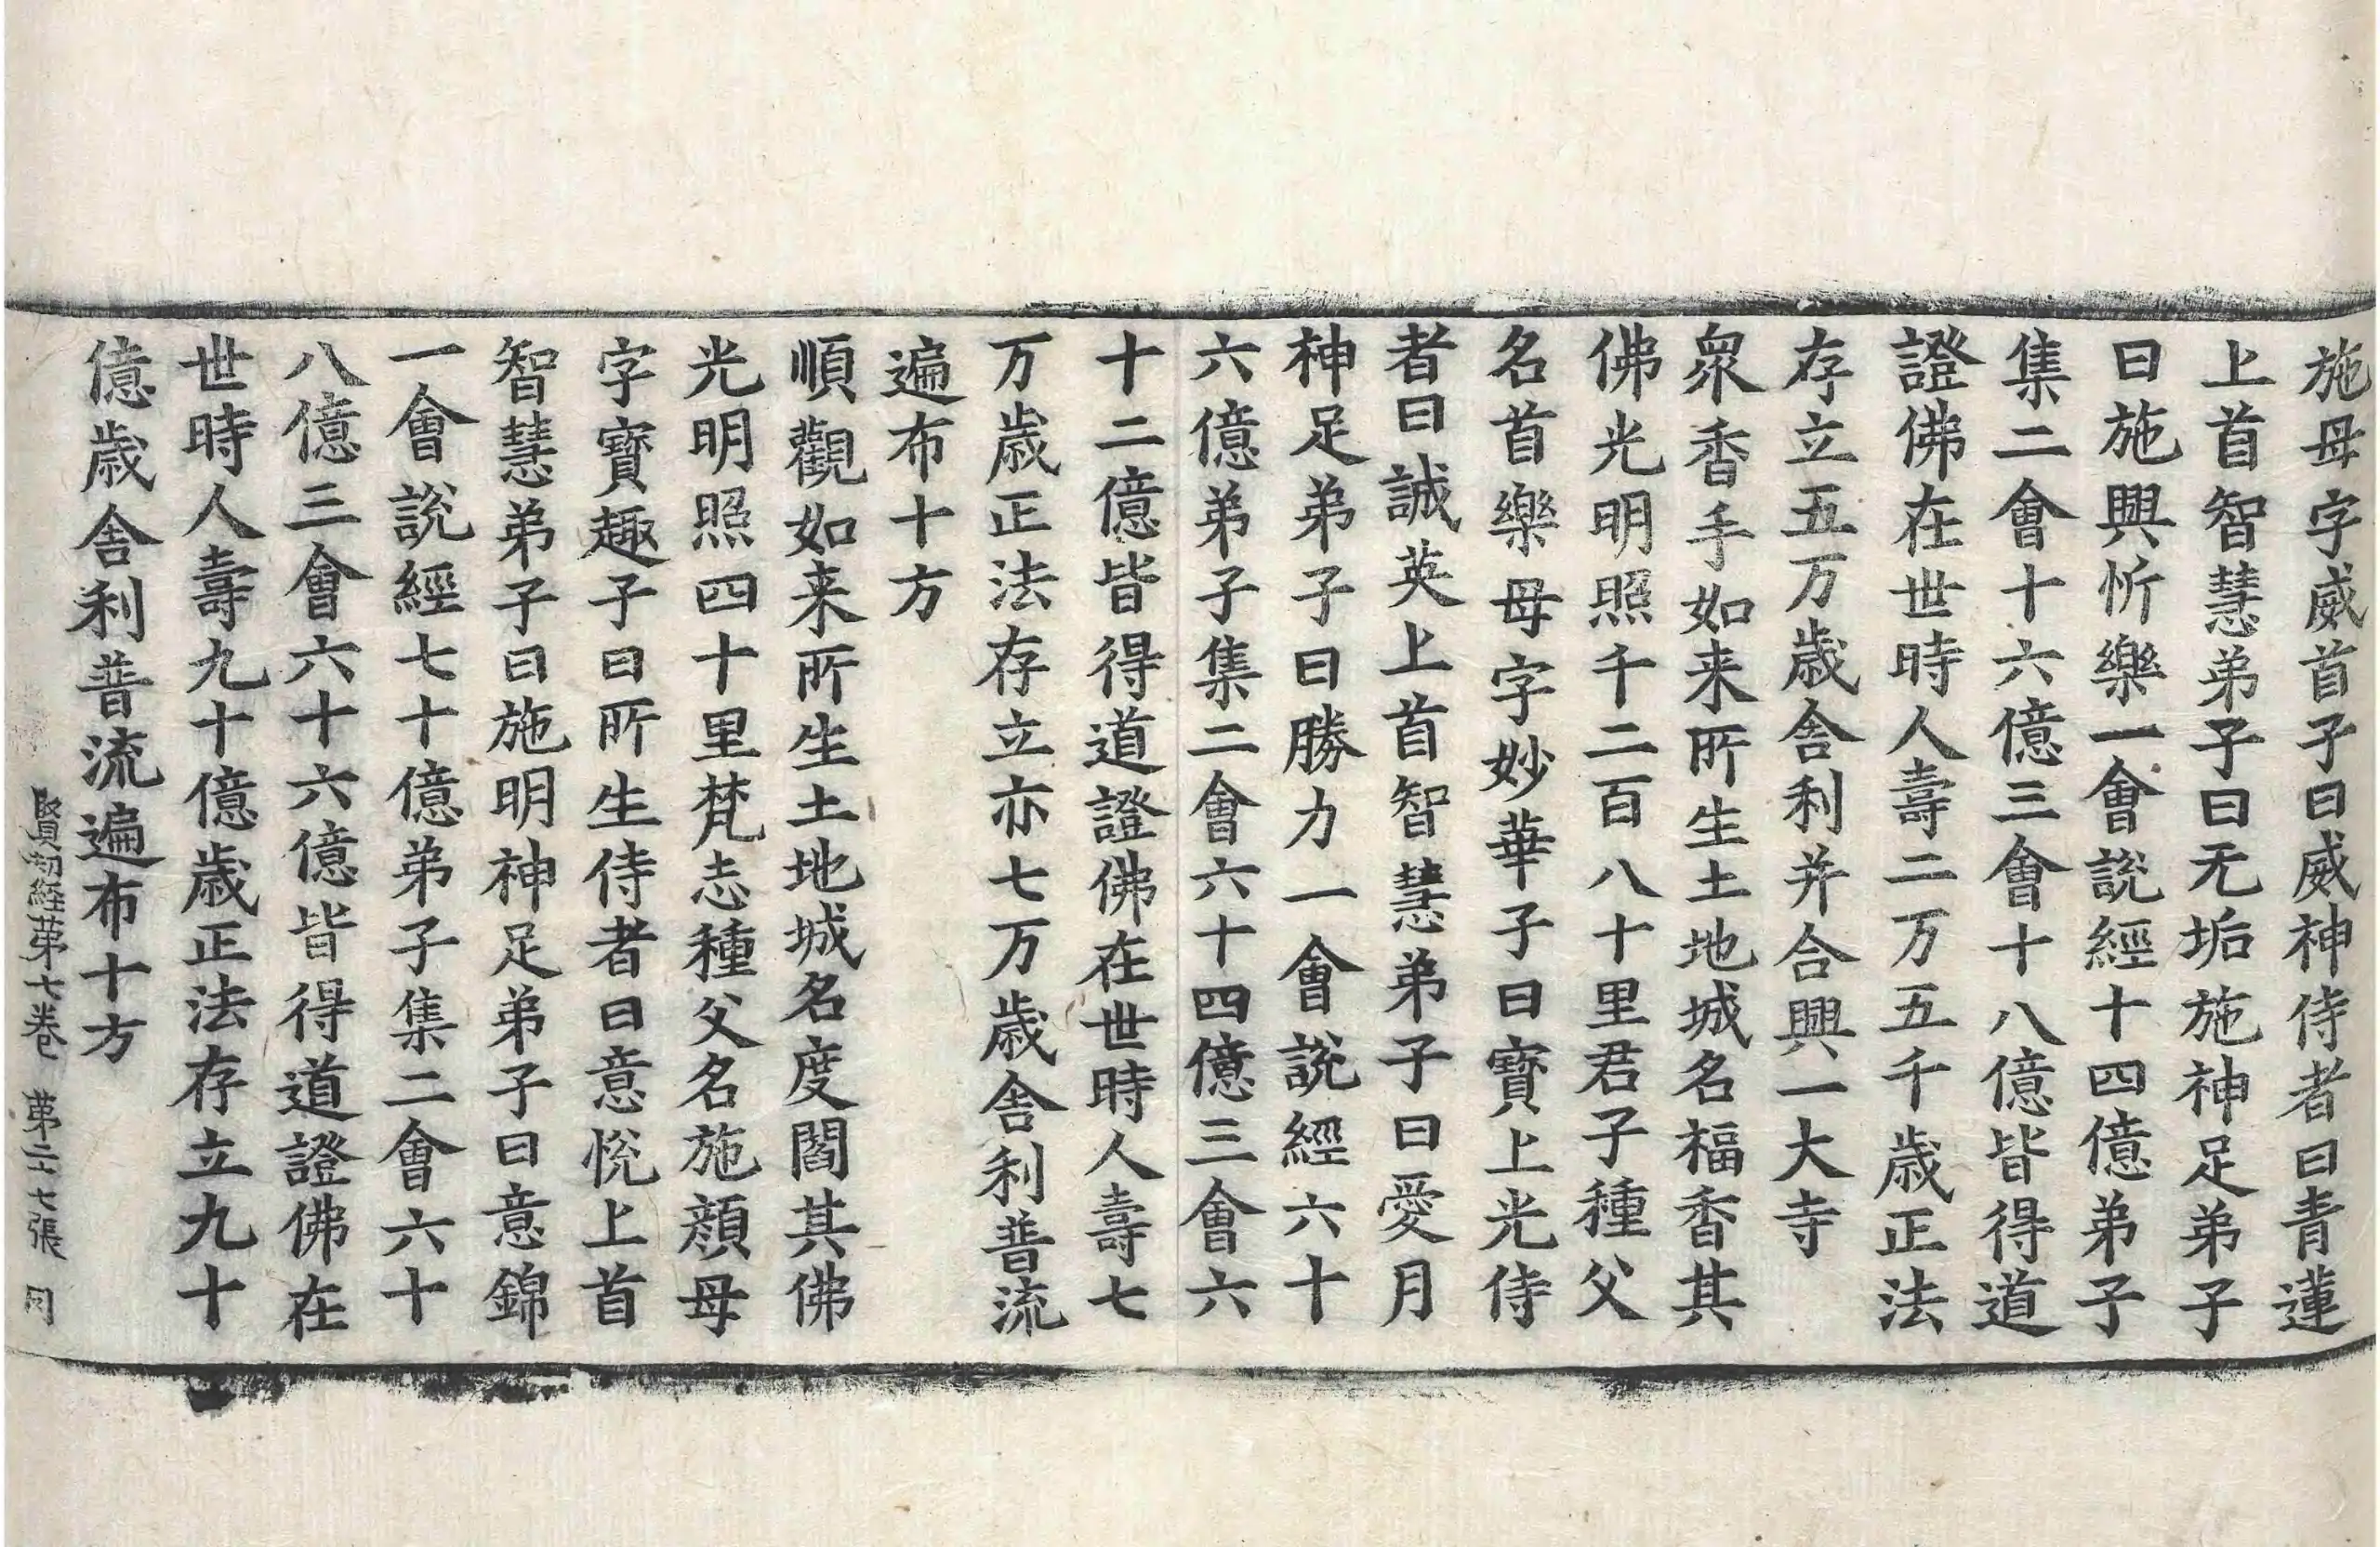 施母字威首子曰威神侍者曰青蓮
上首智慧弟子曰无垢施神足弟子
曰施興忻樂一會説經十四億弟子
集二會十六億三會十八億皆得道
證佛在世時人壽二万五千歳正法
存立五万歳舎利并合興一大寺
衆香手如来所生土地城名福香其
佛光明照千二百八十里君子種父
名首樂母字妙華子曰寳上光侍
者曰誠英上首智慧弟子曰愛月
神足弟子曰勝力一會説經六十
六億弟子集二會六十四億三會六
十二億皆得道證佛在世時人壽七
万歳正法存立亦七万歳舎利普流
遍布十方
順觀如来所生土地城名度閻其佛
光明照四十里梵志種父名施顔母
字寳趣子曰所生侍者曰意恱上首
智慧弟子曰施明神足弟子曰意錦
一會説經七十億弟子集二會六十
八億三會六十六億皆得道證佛在
世時人壽九十億歳正法存立九十
億歳舎利普流遍布十方
賢劫経苐七卷 苐二十七張